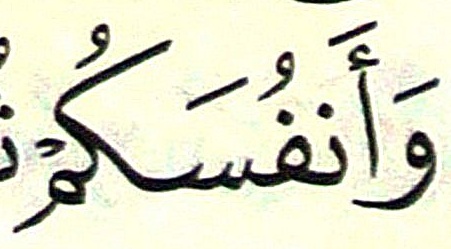 وَأَنفُسَكُمْ